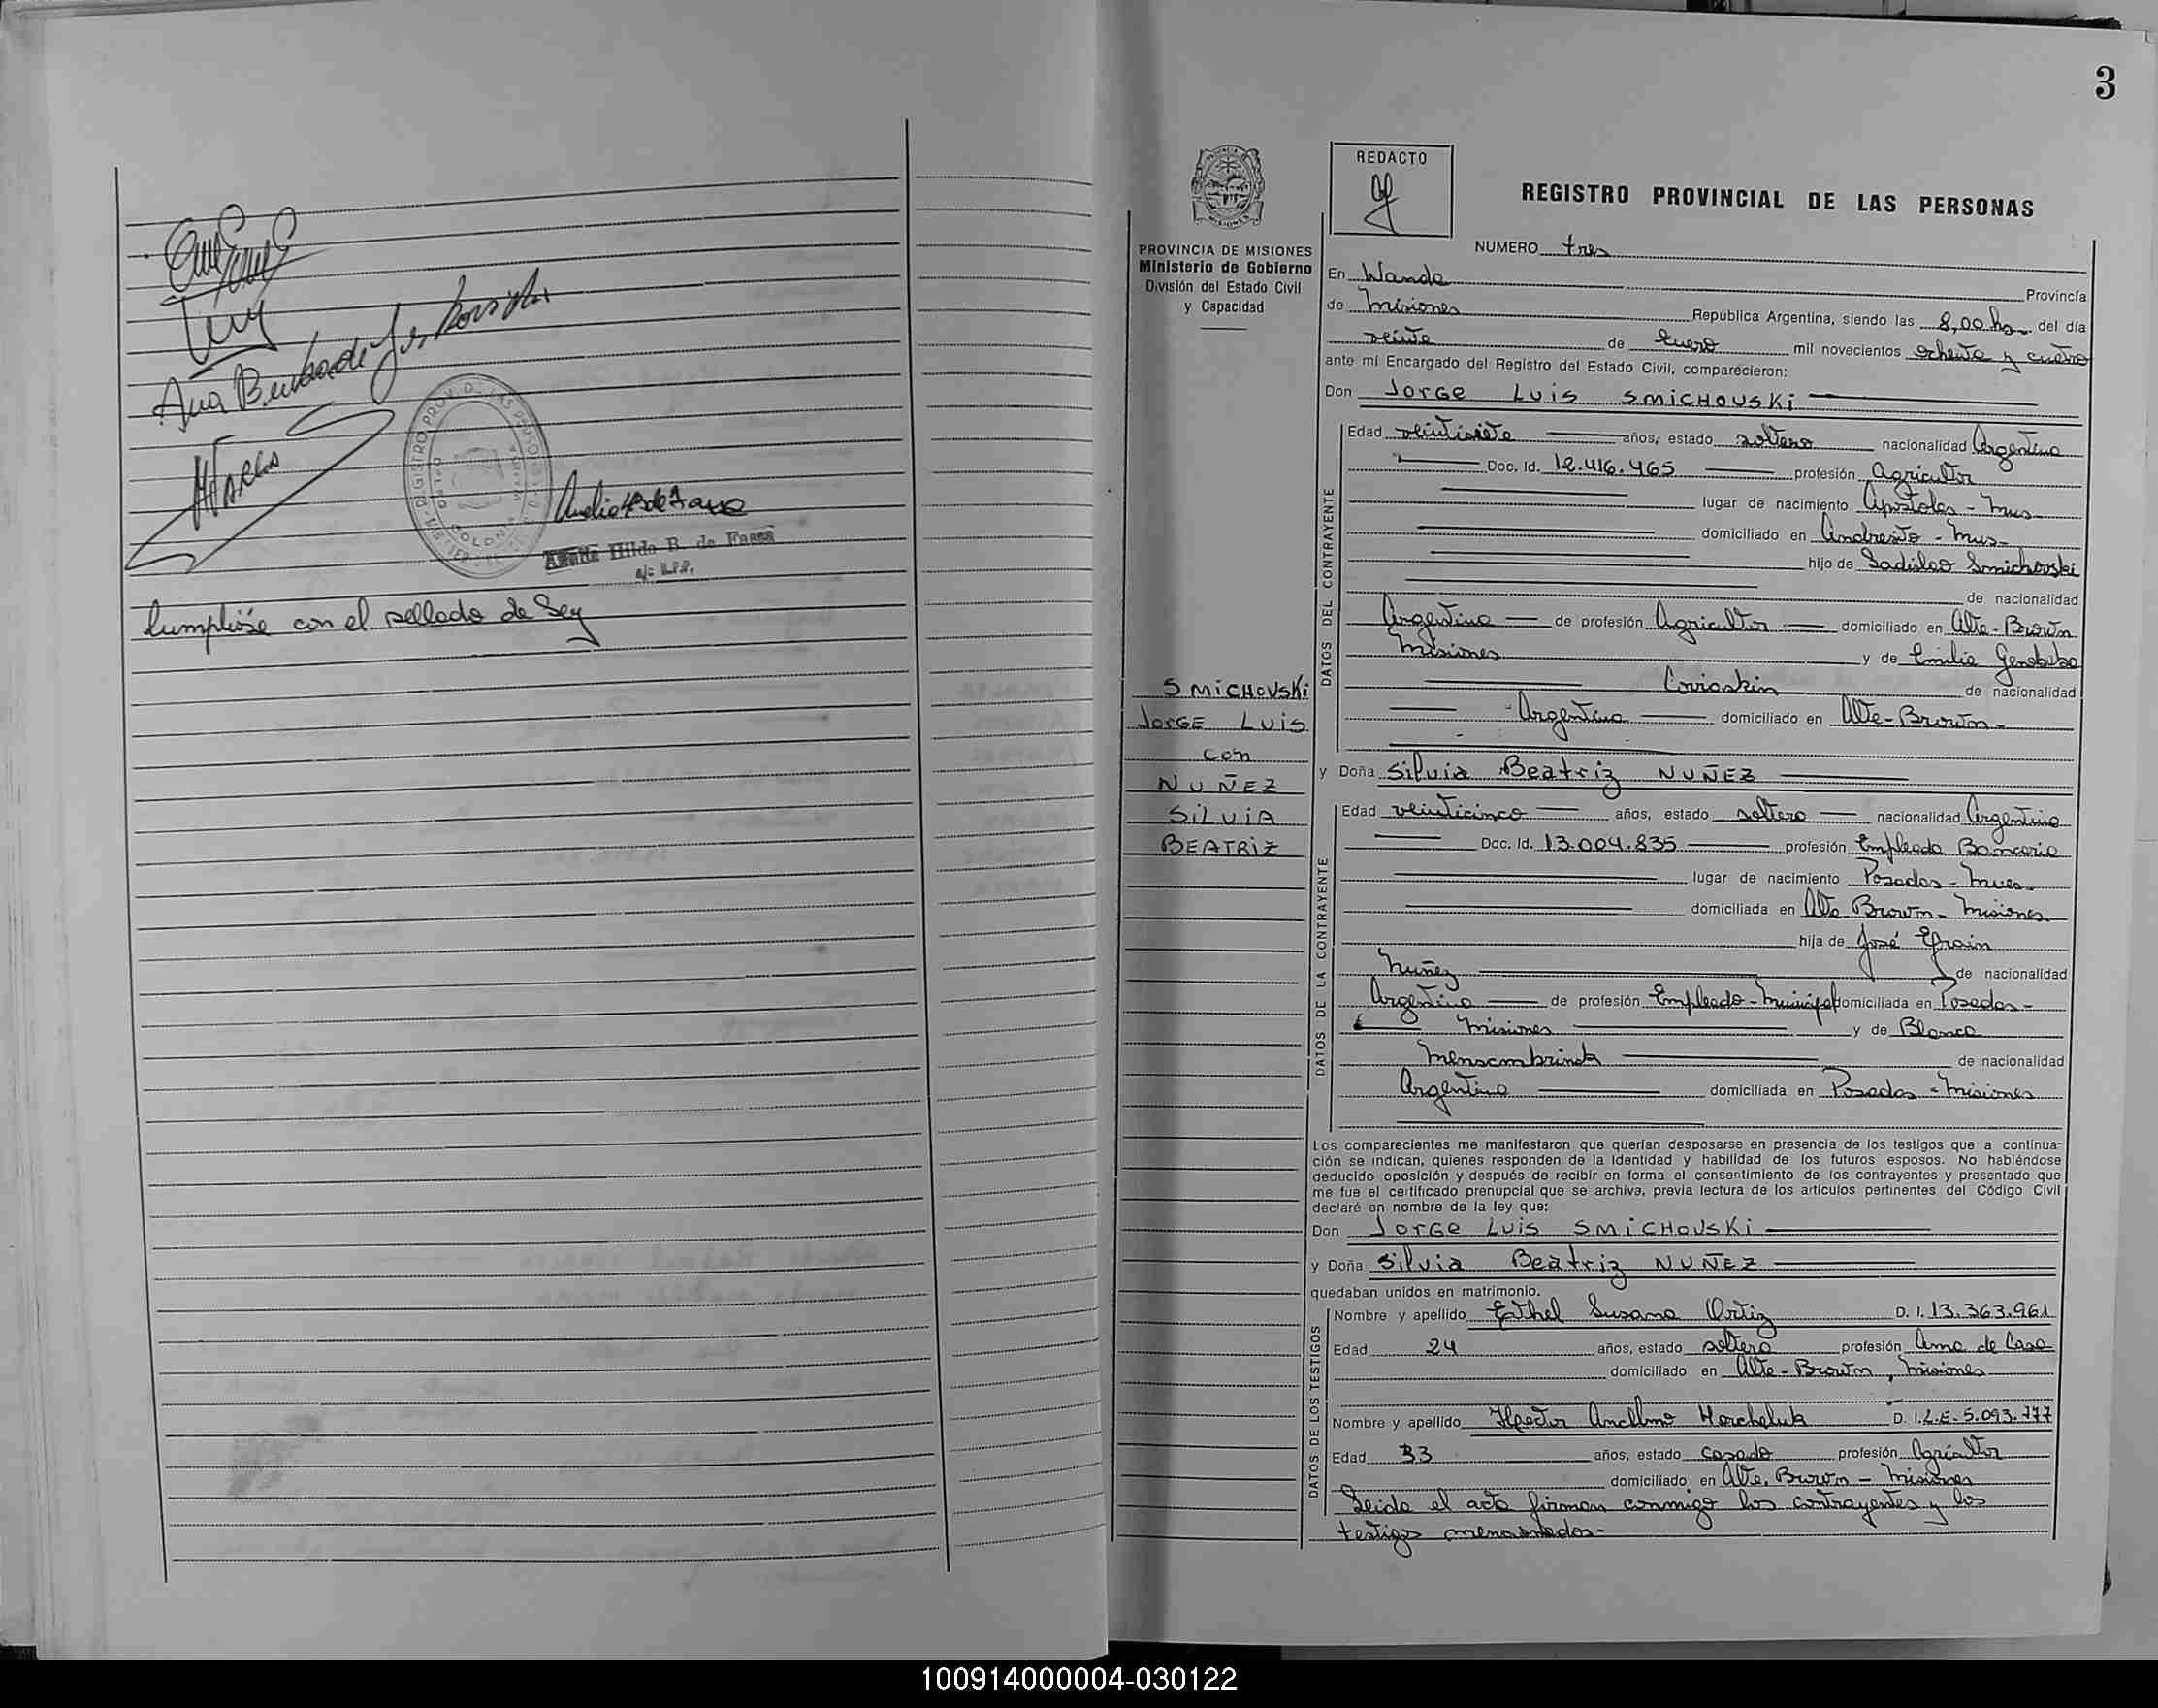 Cumplióse con el sellado de Ley
Hilda B. de Fassa
a/c R.P.P.
3
REDACTO
REGISTRO PROVINCIAL DE LAS PERSONAS
PROVINCIA DE MISIONES
Ministerio de Gobierno
División del Estado Civil
y Capacidad
SMICHOVSKi
JorGE LUiS
con
NUÑEZ
SiLViA
BEATRiZ
NUMERO tres
En Wanda Provincia
de Misiones República Argentina, siendo las 8,00 hs del día
veinte de Enero mil novecientos ochenta y cuatro
ante mí Encargado del Registro del Estado Civil, comparecieron:
Don JorGe Luis SMiCHOVSKi
DATOS DEL CONTRAYENTE
Edad veintisiete años, estado soltero nacionalidad Argentina
Doc. Id. 12.416.465 profesión Agricultor
lugar de nacimiento Apóstoles - Mnes
domiciliado en Andresito - Mnes
hijo de Ladislao Smichovski
de nacionalidad
Argentina de profesión Agricultor domiciliado en Alte-Brown
Misiones y de Emilia Genobeba
de nacionalidad
Argentina domiciliado en Alte-Brown-
y Doña Silvia Beatriz NUÑEZ
DATOS DE LA CONTRAYENTE
Edad veinticinco años, estado soltera nacionalidad Argentina
Doc. Id. 13.004.835 profesión Empleada Bancaria
lugar de nacimiento Posadas - Mnes
domiciliada en Alte Brown - Misiones
hija de José Efrain
Nuñez de nacionalidad
Argentina de profesión Empleado-Municipal domiciliada en Posadas-
Misiones y de Blanca
de nacionalidad
Argentina domiciliada en Posadas - Misiones
Los comparecientes me manifestaron que querían desposarse en presencia de los testigos que a continua-
ción se indican, quienes responden de la identidad y habilidad de los futuros esposos. No habiéndose
deducido oposición y después de recibir en forma el consentimiento de los contrayentes y presentado que
me fue el certificado prenupcial que se archiva, previa lectura de los artículos pertinentes del Código Civil
declaré en nombre de la ley que:
Don JorGe Luis SMiCHOVSKi
y Doña Silvia Beatriz NUÑEZ
quedaban unidos en matrimonio.
DATOS DE LOS TESTIGOS
Nombre y apellido Ethel Susana Ortiz D. I. 13.363.961
Edad 24 años, estado soltera profesión Ama de Casa
domiciliado en Alte-Brown, Misiones
Nombre y apellido Hector Ancelmo Horcheluk D. I. L.E. 5.093.777
Edad 33 años, estado casado profesión Agricultor
domiciliado en Alte. Brown - Misiones
Leida el acta firman conmigo los contrayentes y los
testigos mencionados-
100914000004-030122